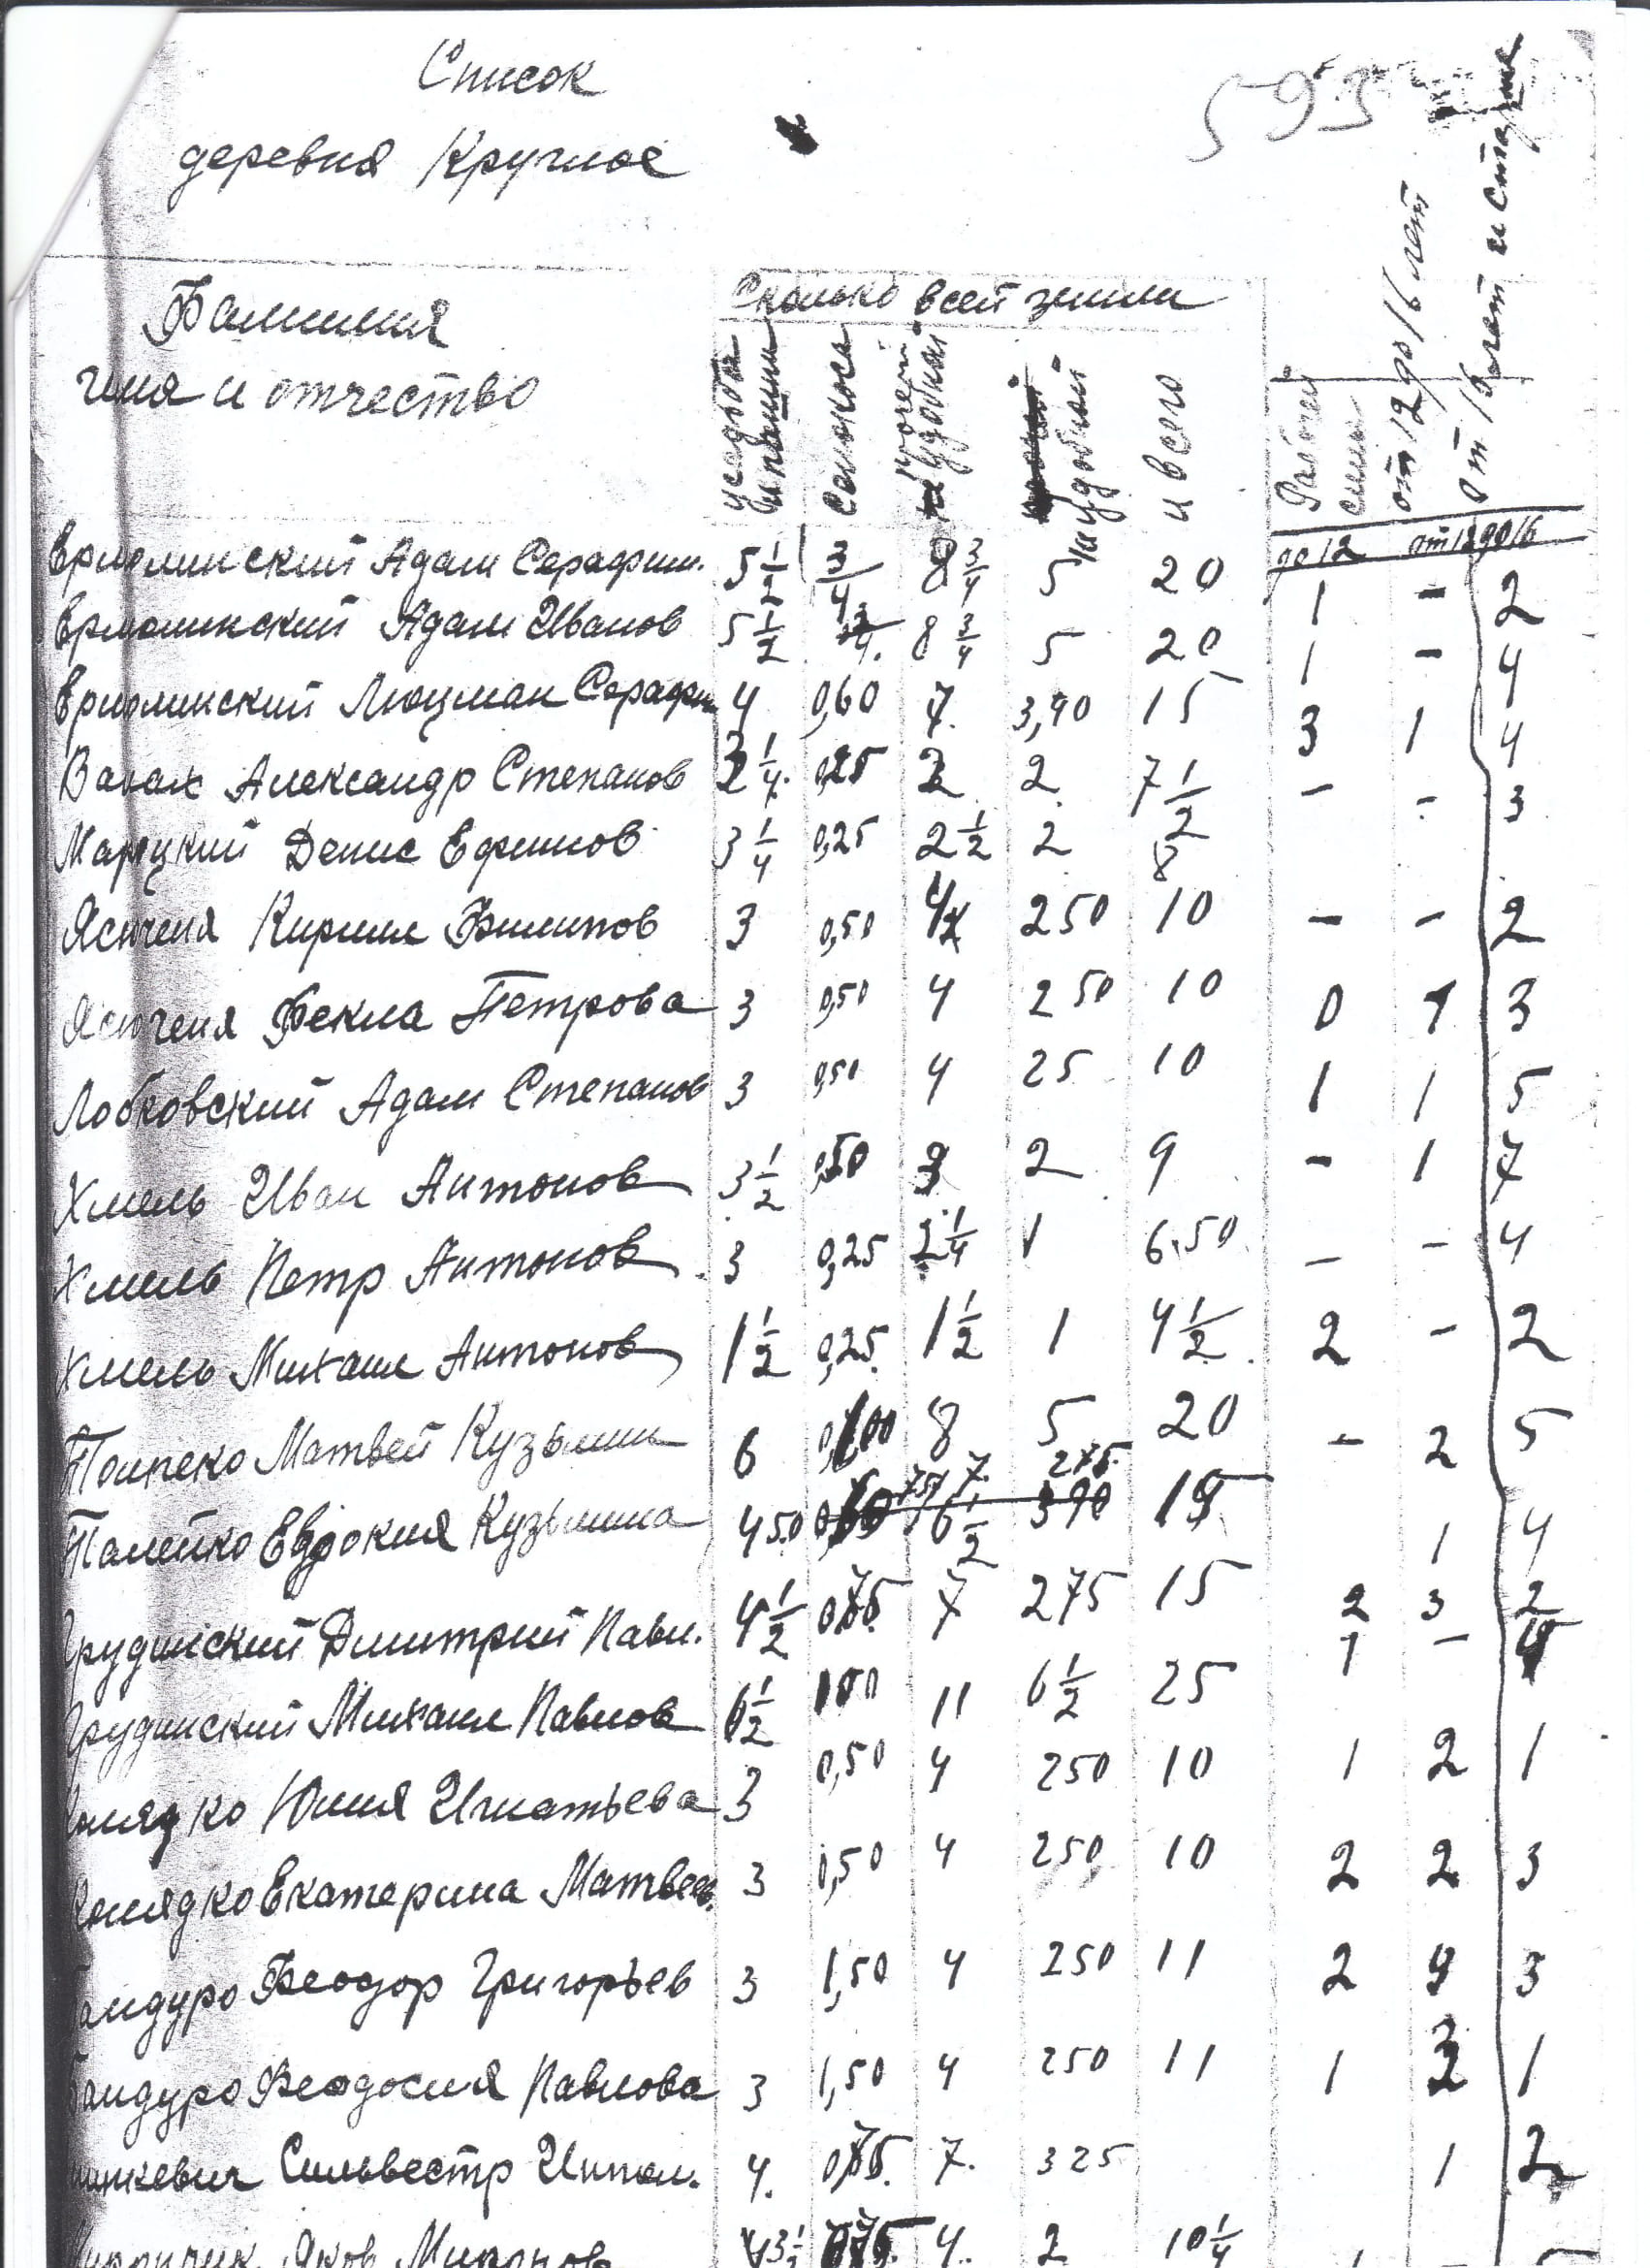 Список
593
деревня Круглое
Фамилия
имя и отчество
Сколько всей земли
усадьба и пашни
сенокоса
прочей удобной
неудобной
и всего
Рабочей силы
от 12 до 16 лет
от 16 лет и старше
до 12 от 12 до 16
Ермолинский Адам Серафим. 5 1/2 3/4 8 3/4 5 20 1 - 2
Ермолинский Адам Иванов 5 1/2 3/4 8 3/4 5 20 1 - 4
Ермолинский Люцман Серафим 4 0,60 7. 3,40 15 3 1 4
Александр Степанов 2 1/4 0,25 2 2 7 1/2 - - 3
Денис Ефимов 3 1/4 0,25 2 1/2 2 8
Ясюченя Кирилл Филипов 3 0,50 4 250 10 - - 2
Ясюченя Фекла Петрова 3 0,50 4 250 10 0 1 3
Лобковский Адам Степанов 3 0,50 4 25 10 1 1 5
Хмель Иван Антонов 3 1/2 0,50 3 2 9 - 1 7
Хмель Петр Антонов 3 0,25 2 1/4 1 6.50 - - 4
Хмель Михаил Антонов 1 1/2 0,25. 1 1/2 1 4 1/2 2 - 2
Матвей Кузьмин 6 8 5 20 - 2 5
Евдокия Кузьмина 450 7. 275. 15 1 4
Грудинский Дмитрий Павл. 4 1/2 075 7 275 15 2 3 2
Грудинский Михаил Павлов 6 1/2 100 11 6 1/2 25 1 - 4
Юлия Игнатьева 3 0,50 4 250 10 1 2 1
Екатерина Матвеев. 3 0,50 4 250 10 2 2 3
Феодор Григорьев 3 1,50 4 250 11 2 3
Феодосия Павлова 3 1,50 4 250 11 1 1
Сильвестр Иппол. 4. 075. 7. 325 1 2
Яков Миронов 3 1/2 075. 4. 2 10 1/4